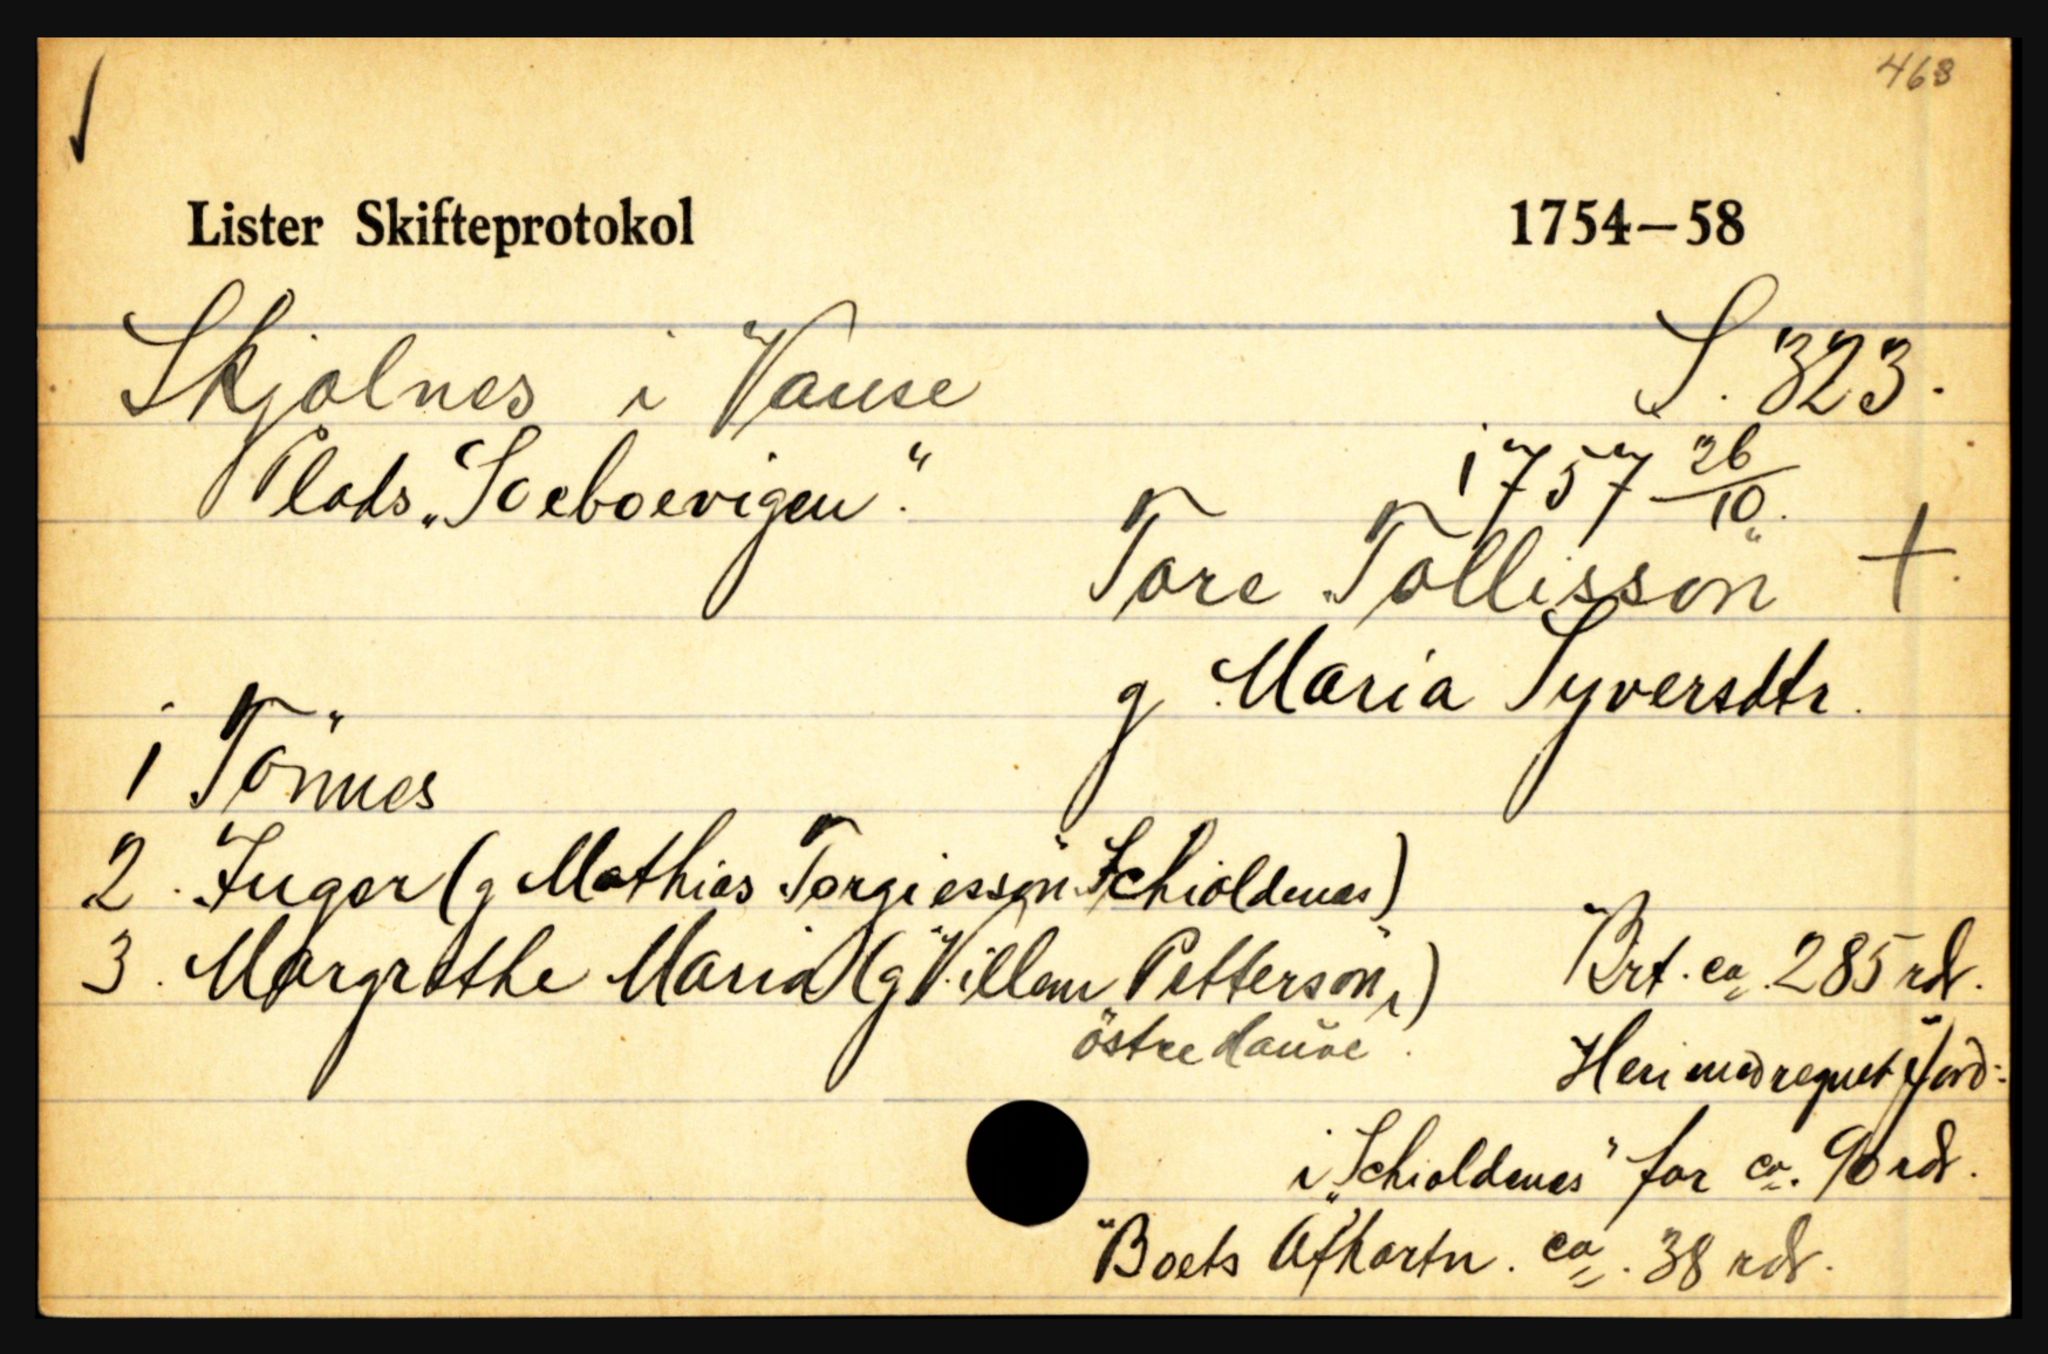 468
Lister Skifteprotokol 1754—58
Skjolnes i Vanse S. 323.
Plads „Soeboevigen". 1757 26/10.
Tore Tollisson +.
g Maria Syversdtr.
1 Tönnes
2. Inger (g Mathias Torgiesson Schioldnes)
3. Margrethe Maria (g Villem Petterson, i)
östre Hauve.
Brt. ca. 285 rdr.
Heri medregnet Jord:
i „Schioldnes" for ca. 90 rdr.
Boets Afkortn. ca. 38 rdr.